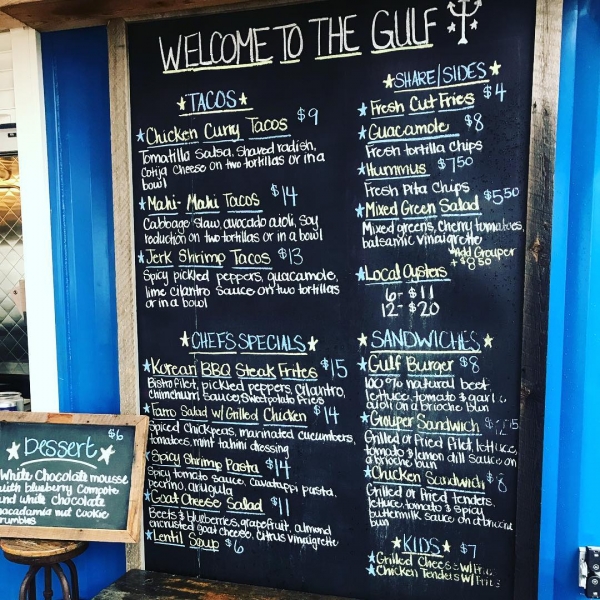 WELCOME TO THE GULF
TACOS
Chicken Curry Tacos $9
Tomatilla Salsa, Shaved radish,
Cotija Cheese on two tortillas or in a
bowl
Mahi-Mahi Tacos $14
Cabbage Slaw, avocado aioli, Soy
reduction on two tortillas or in a bowl
Jerk Shrimp Tacos $13
Spicy pickled peppers, guacamole,
lime cilantro Sauce on two tortillas
or in a bowl
CHEFS SPECIALS
Korean BBQ Steak Frites $15
Bistro filet, pickled peppers, Cilantro,
Chimichurri sauce, Sweet potato Frites
Farro Salad w/ Grilled Chicken $14
Spiced Chickpeas, marinated cucumbers,
tomatoes, mint tahini dressing
Spicy Shrimp Pasta $14
Spicy tomato sauce, Cavatappi pasta,
Pecorino, arugula
Goat Cheese Salad $11
Beets & blueberries, grapefruit, almond
encrusted goat cheese, Citrus vinaigrette
Lentil Soup $6
SHARE/SIDES
Fresh Cut Fries $4
Guacamole $8
Fresh tortilla chips
Hummus $7.50
Fresh Pita Chips
Mixed Green Salad $5.50
Mixed greens, cherry tomatoes,
balsamic Vinaigrette
Add Grouper
+ $8.50
Local Oysters
6- $11
12- $20
SANDWICHES
Gulf Burger $8
100% natural beef
lettuce, tomato & garlic
aioli on a brioche bun
Grouper Sandwich
Grilled or Fried filet, lettuce,
tomato & lemon dill sauce on
a brioche bun
Chicken Sandwich $8
Grilled or Fried tenders,
lettuce, tomato & spicy
buttermilk sauce on a brioche
bun
KIDS $7
Grilled Cheese w/ Fries
Chicken Tenders w/ Fries
Dessert $6
White Chocolate mousse
with blueberry Compote
and white Chocolate
macadamia nut cookie
crumbles